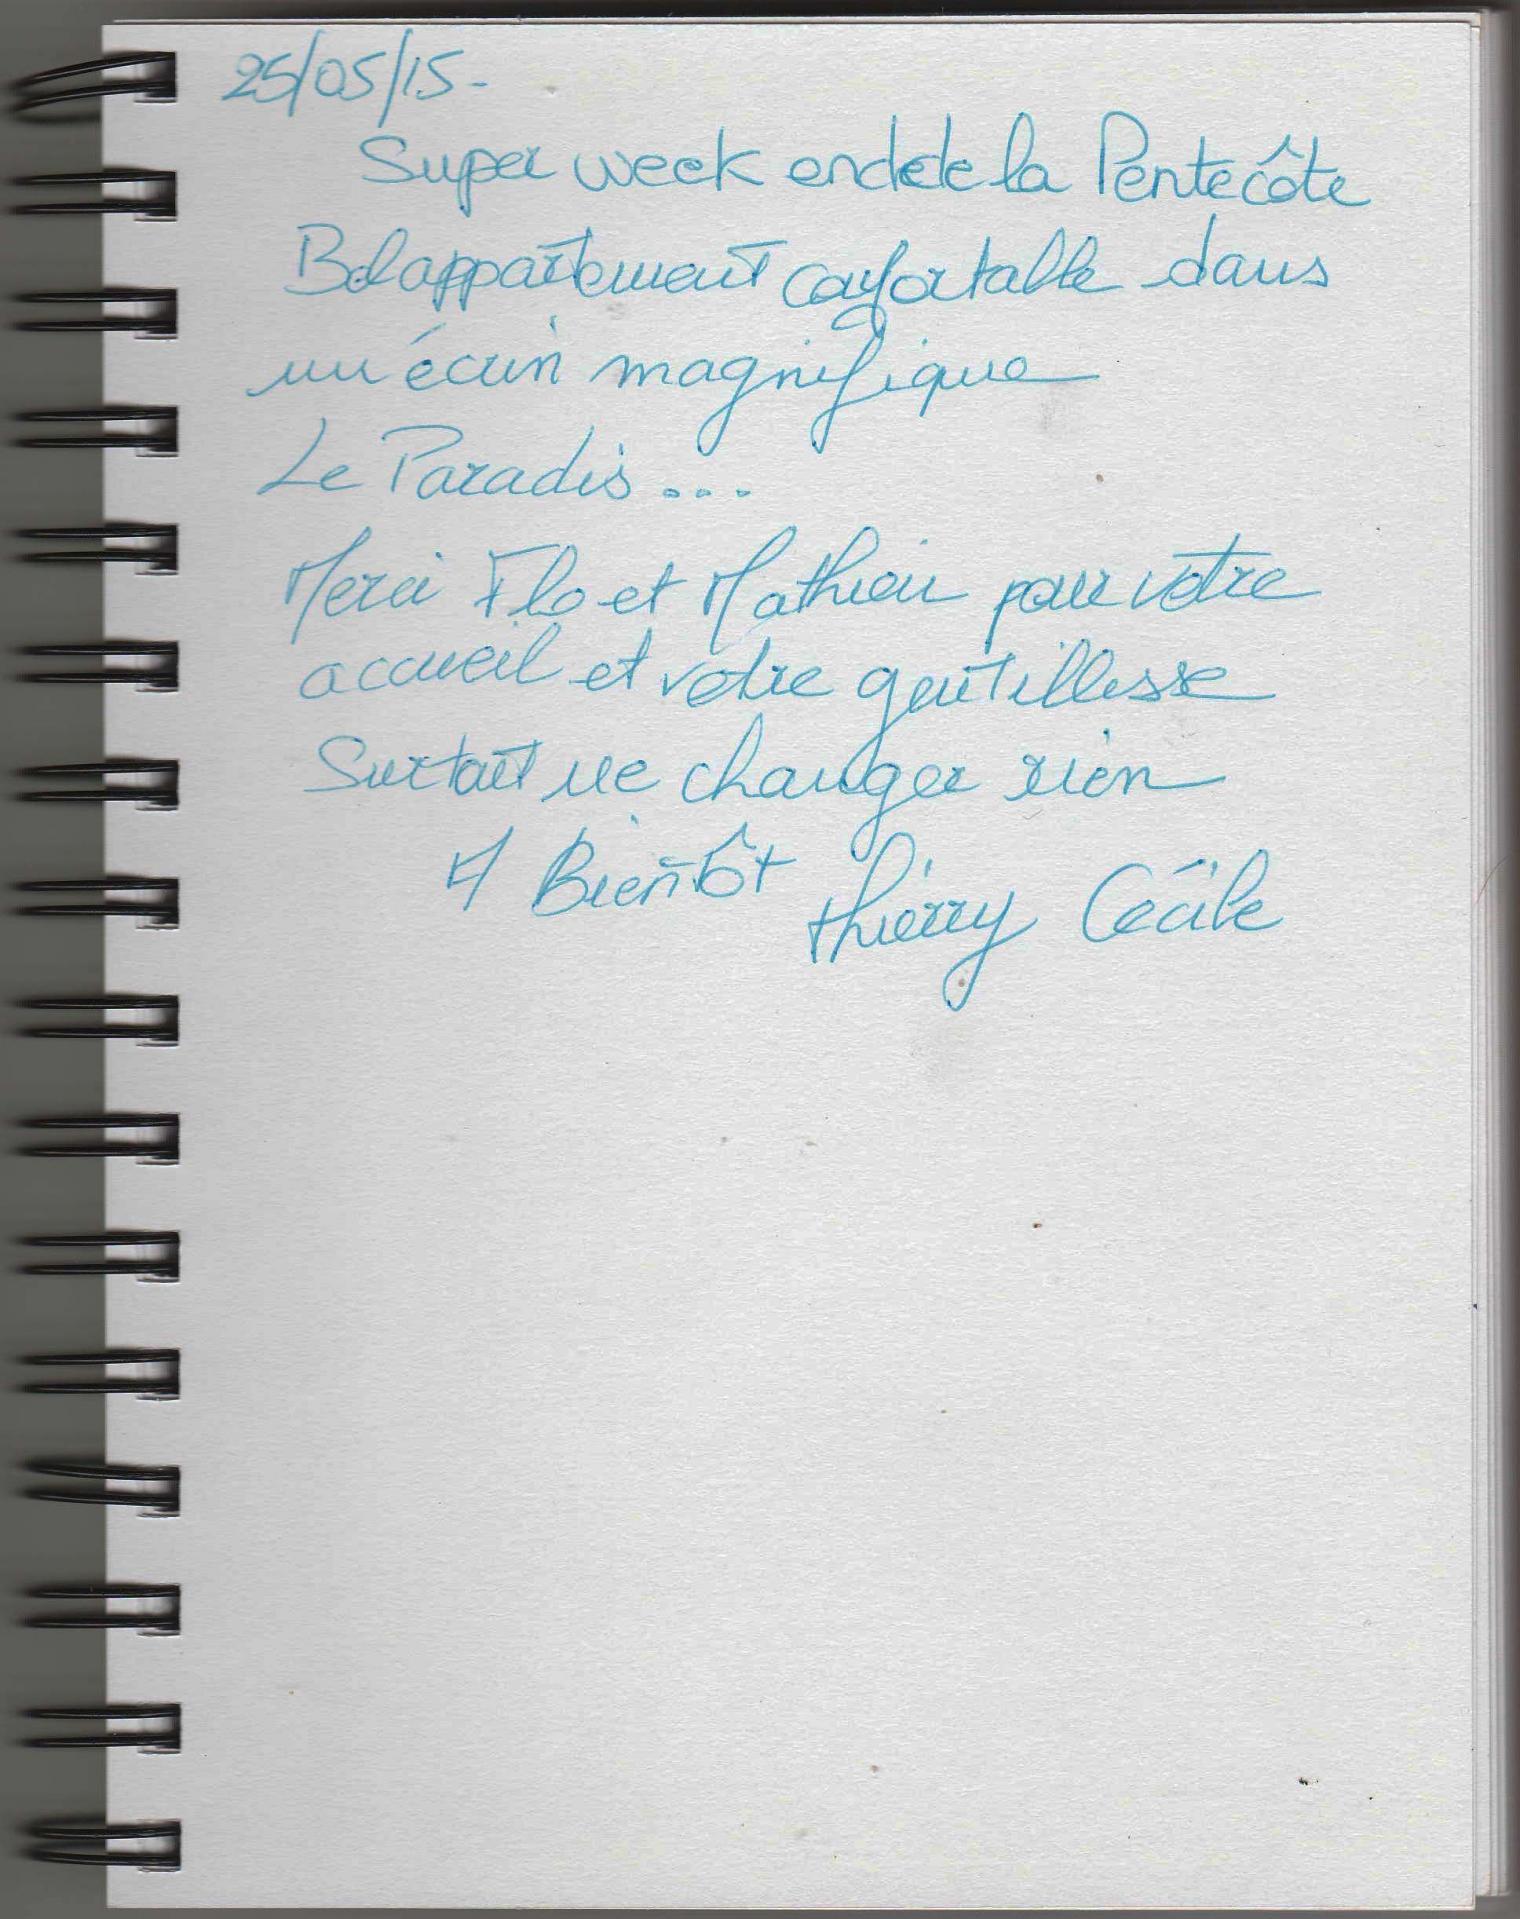 25/05/15-
Super week end de la Pentecôte
Bel appartement confortable dans
un écrin magnifique
Le Paradis...
Merci Flo et Mathieu pour votre
accueil et votre gentillesse
Surtout ne changer rien
A Bientôt Thierry Cécile